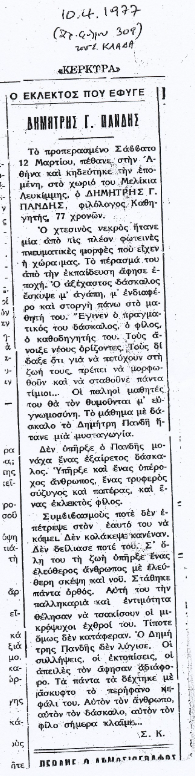 10.4.1977
«ΚΕΡΚΥΡΑ»
Ο ΕΚΛΕΚΤΟΣ ΠΟΥ ΕΦΥΓΕ
ΔΗΜΗΤΡΗΣ Γ. ΠΑΝΔΗΣ
Τὸ προπερασμένο Σάββατο
12 Μαρτίου, πέθανε στὴν Ἀ-
θήνα καὶ κηδεύτηκε τὴν ἑπο-
μένη, στὸ χωριό του Μελίκια
Λευκίμμης, ὁ ΔΗΜΗΤΡΗΣ Γ.
ΠΑΝΔΗΣ, φιλόλογος Καθη-
γητής, 77 χρονῶν.
Ὁ χτεσινὸς νεκρὸς ἤτανε
μία ἀπὸ τὶς πλέον φωτεινὲς
πνευματικὲς μορφὲς ποὺ εἶχεν
ἡ χώρα μας. Τὸ πέρασμά του
ἀπὸ τὴν ἐκπαίδευση ἄφησε ἐπο-
χή. Ὁ ἀξέχαστος δάσκαλος
ἔσκυψε μ' ἀγάπη, μ' ἐνδιαφέ-
ρο καὶ στοργὴ πάνω στὸ μα-
θητή του. Ἔγινεν ὁ πραγμα-
τικός του δάσκαλος, ὁ φίλος,
ὁ καθοδηγητής του. Τοὺς ἄ-
νοιξε νέους ὁρίζοντες. Τοὺς δί-
δαξε ὅτι γιὰ νὰ πετύχουν στὴ
ζωή τους, πρέπει νὰ μορφω-
θοῦν καὶ νὰ σταθοῦνε πάντα
τίμιοι.. Οἱ παληοὶ μαθητές
του θὰ τὸν θυμοῦνται μ' εὐ-
γνωμοσύνη. Τὸ μάθημα μὲ δά-
σκαλο τὸ Δημήτρη Πανδῆ ἤ-
τανε μιὰ μυσταγωγία.
Δὲν ὑπῆρξε ὁ Πανδῆς μο-
νάχα ἕνας ἐξαίρετος δάσκα-
λος. Ὑπῆρξε καὶ ἕνας ὑπέρο-
χος ἄνθρωπος, ἕνας τρυφερὸς
σύζυγος καὶ πατέρας, καὶ ἕ-
νας ἐκλεκτὸς φίλος.
Συμβιβασμοὺς ποτὲ δὲν ἐ-
πέτρεψε στὸν ἑαυτό του νὰ
κάμει. Δὲν κολάκεψε κανέναν.
Δὲν δείλιασε ποτέ του. Σ' ὅ-
λη του τὴ ζωὴ ὑπῆρξε ἕνας
ἐλεύθερος ἄνθρωπος μὲ ἐλεύ-
θερη σκέψη καὶ νοῦ. Στάθηκε
πάντα ὀρθός. Αὐτή του τὴν
παλληκαριὰ καὶ ἐντιμότητα
θέλησαν νὰ τσακίσουν οἱ μι-
κρόψυχοι ἐχθροί του. Τίποτε
ὅμως δὲν κατάφεραν. Ὁ Δημή-
τρης Πανδῆς δὲν λύγισε. Οἱ
συλλήψεις, οἱ ἐκτοπίσεις, οἱ
ἀπειλὲς τὸν ἄφησαν ἀδιάφο-
ρο. Τὰ πάντα τὰ δέχτηκε μὲ
ἄσκυφτο τὸ περήφανο κε-
φάλι του. Αὐτὸν τὸν ἄνθρωπο,
αὐτὸν τὸν δάσκαλο, αὐτὸν τὸν
φίλο σήμερα κλαῖμε...
Σ. Κ.